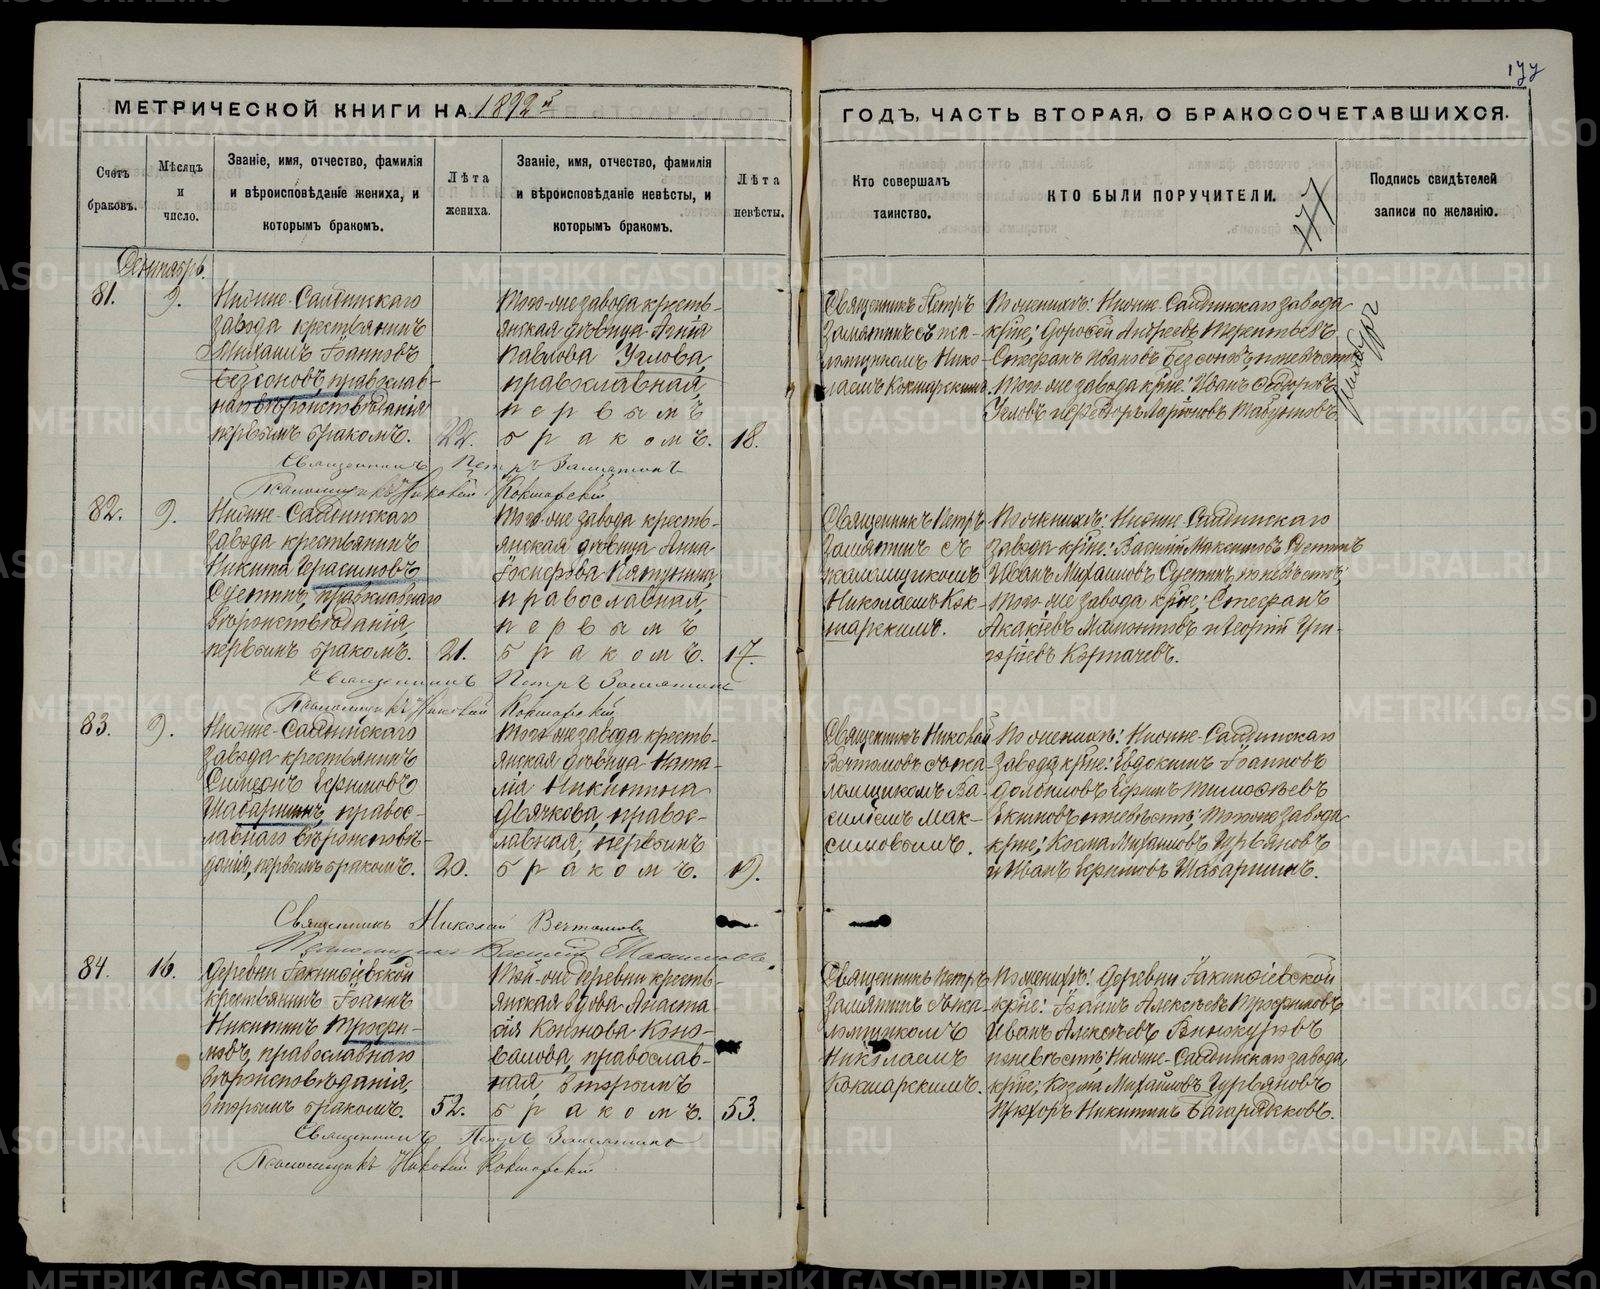 177
МЕТРИЧЕСКОЙ КНИГИ НА 1892 й
ГОДЪ, ЧАСТЬ ВТОРАЯ, О БРАКОСОЧЕТАВШИХСЯ.
Счетъ браковъ.
Мѣсяцъ и число.
Званіе, имя, отчество, фамилія
и вѣроисповѣданіе жениха, и
которымъ бракомъ.
Лѣта жениха.
Званіе, имя, отчество, фамилія
и вѣроисповѣданіе невѣсты, и
которымъ бракомъ.
Лѣта невѣсты.
Кто совершалъ
таинство.
КТО БЫЛИ ПОРУЧИТЕЛИ.
177
Подпись свидѣтелей
записи по желанію.
81.
9.
Нижне-Салдинскаго
завода крестьянинъ
Михаилъ Іоанновъ
Безсоновъ, православ-
наго вѣроисповѣданія
первымъ бракомъ.
22.
Того-же завода кресть-
янская дѣвица
Павлова Углова,
православная,
первымъ
бракомъ.
18.
Священникъ Петръ
Замятинъ съ пса-
ломщикомъ Нико-
лаемъ Кокшарскимъ.
По женихѣ: Нижне-Салдинскаго завода
кр-не: Дорофей Андреевъ Терентьевъ
Стефанъ Ивановъ Безсоновъ, по невѣстѣ
того же завода кр-не: Иванъ Ѳедоровъ
Угловъ
Священникъ Петръ Замятинъ
Псаломщикъ Николай Кокшарскій
82.
9.
Нижне-Салдинскаго
завода крестьянинъ
Никита Герасимовъ
православнаго
вѣроисповѣданія,
первымъ бракомъ.
21.
Того-же завода кресть-
янская дѣвица Анна
Іосифова
православная,
первымъ
бракомъ.
17.
Священникъ Петръ
Замятинъ съ
псаломщикомъ
Николаемъ Кок-
шарскимъ.
По женихѣ: Нижне-Салдинскаго
завода кр-не: Василій Максимовъ
Иванъ Михаиловъ по невѣстѣ;
того-же завода кр-не; Стефанъ
Акакіевъ Мамонтовъ и Георгій Гри-
горьевъ
Священникъ Петръ Замятинъ
Псаломщикъ Николай Кокшарскій
83.
9.
Нижне-Салдинскаго
завода крестьянинъ
Симеонъ Ефимовъ
Шабаршинъ, правос-
лавнаго вѣроисповѣ-
данія, первымъ бракомъ.
20.
Того-же завода кресть-
янская дѣвица Ната-
лія Никитина
Дьячкова, правос-
лавная, первымъ
бракомъ.
19.
Священникъ Николай
Вечтомовъ съ пса-
ломщикомъ Ва-
силіемъ Мак-
симовымъ.
По женихѣ: Нижне-Салдинскаго
завода кр-не: Евдокимъ Іоанновъ
Ефимъ Тимофеевъ
того же завода
кр-не; Косма Михаиловъ Гурьяновъ
и Иванъ Ефимовъ Шабаршинъ.
Священникъ Николай Вечтомовъ
Псаломщикъ Василій Максимовъ.
84.
16.
Деревни Іакинфіевской
крестьянинъ Іоаннъ
Никитинъ Трофи-
мовъ, православнаго
вѣроисповѣданія,
вторымъ бракомъ.
52.
Той-же деревни кресть-
янская вдова Анаста-
сія Кононова Коно-
валова, православ-
ная, вторымъ
бракомъ.
53.
Священникъ Петръ
Замятинъ съ пса-
ломщикомъ
Николаемъ
Кокшарскимъ.
По женихѣ: деревни Іакинфіевской
кр-не: Іоаннъ Алексѣевъ Трофимовъ
Иванъ Алексѣевъ Винокуровъ
по невѣстѣ; Нижне-Салдинскаго завода
кр-не; Козма Михайловъ Гурьяновъ
Никитинъ
Священникъ Петръ Замятинъ
Псаломщикъ Николай Кокшарскій
METRIKI.GASO-URAL.RU